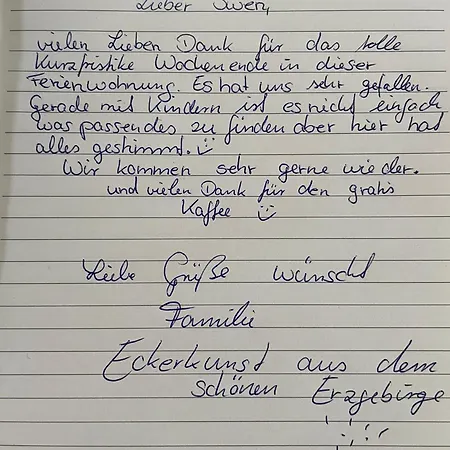 Lieber Swen,
vielen Lieben Dank für das tolle
Kurzfristike Wochenende in dieser
Ferienwohnung. Es hat uns sehr gefallen.
Gerade mit Kindern ist es nicht einfach
was passendes zu finden aber hier hat
alles gestimmt.
Wir kommen sehr gerne wieder.
und vielen Dank für den gratis
Kaffee
Liebe Grüße wünscht
Familie
Eckerkunst aus dem
schönen Erzgebirge